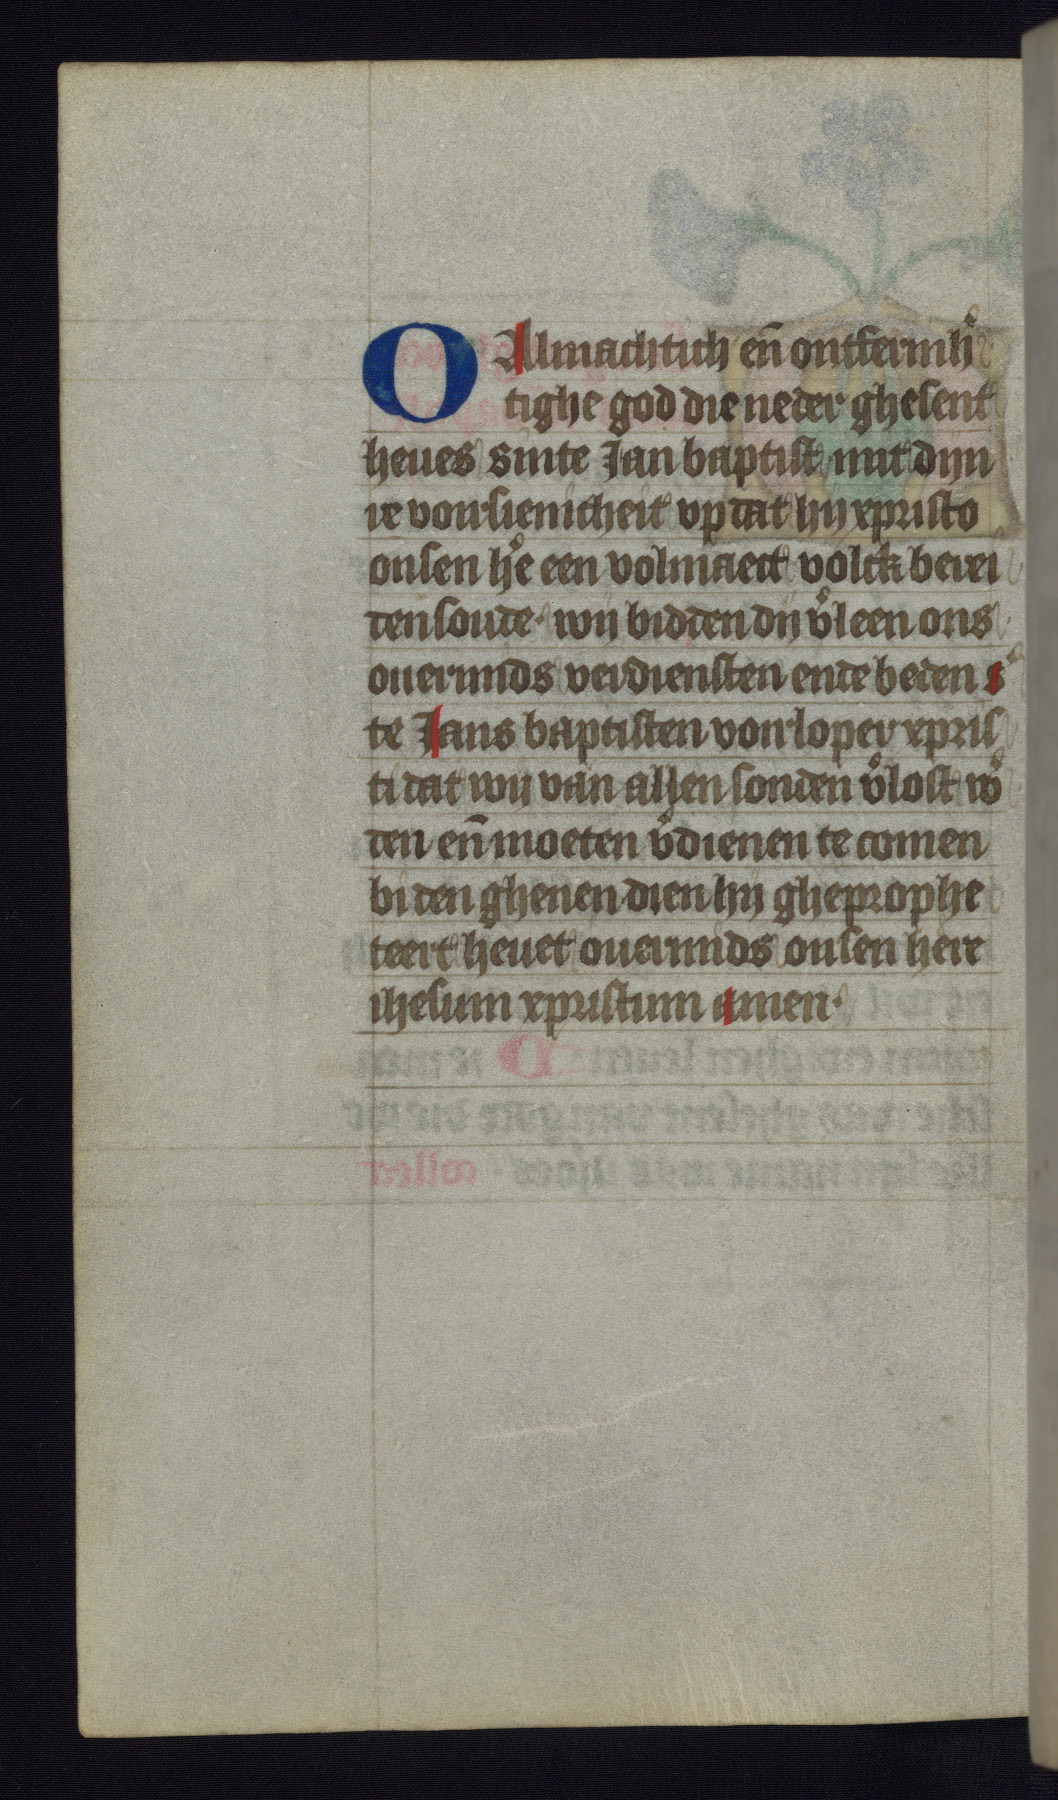 O Almachtich en̄ ontfermh᷒
tighe god die neder ghesent
heues sinte Jan baptist mit dijn
re voirsienicheit vp dat hij xpristo
onsen he᷒ een volmaect volck berei
den soude· wij bidden dij v᷒leen ons
ouermids verdiensten ende beden s᷒
te Jans baptisten voirloper xpris
ti dat wij van allen sonden v᷒lost wo᷒
den en̄ moeten v᷒dienen te comen
bi den ghenen dien hij gheprophe
teert heuet ouermids onsen here
ihesum xpristum amen·